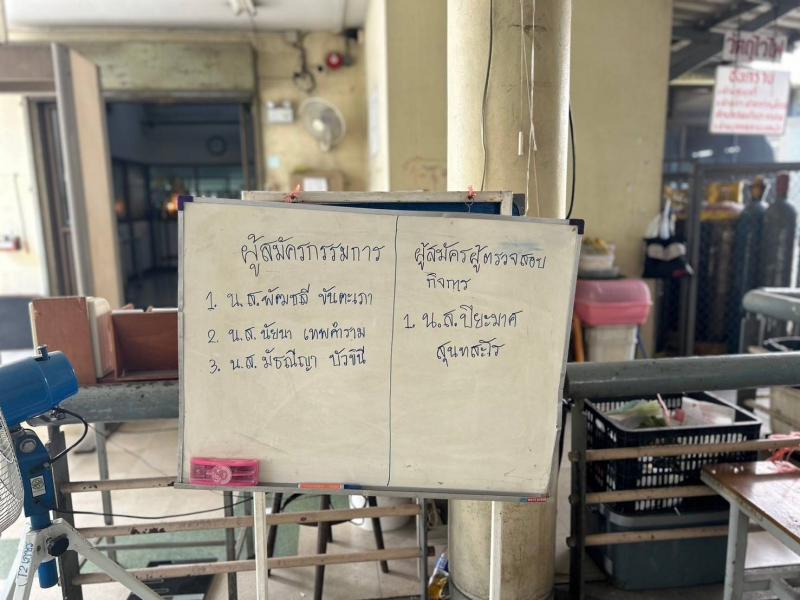 ผู้สมัครกรรมการ
1. น.ส.พัฒชลี ขันตะเภา
2. น.ส.นัยนา เทพคำราม
3. น.ส.มัธณีญา บัวขินี
ผู้สมัครผู้ตรวจสอบ
กิจการ
1. น.ส.ปิยะมาศ
สุนทสะไร
วัตถุไวไฟ
อันตราย